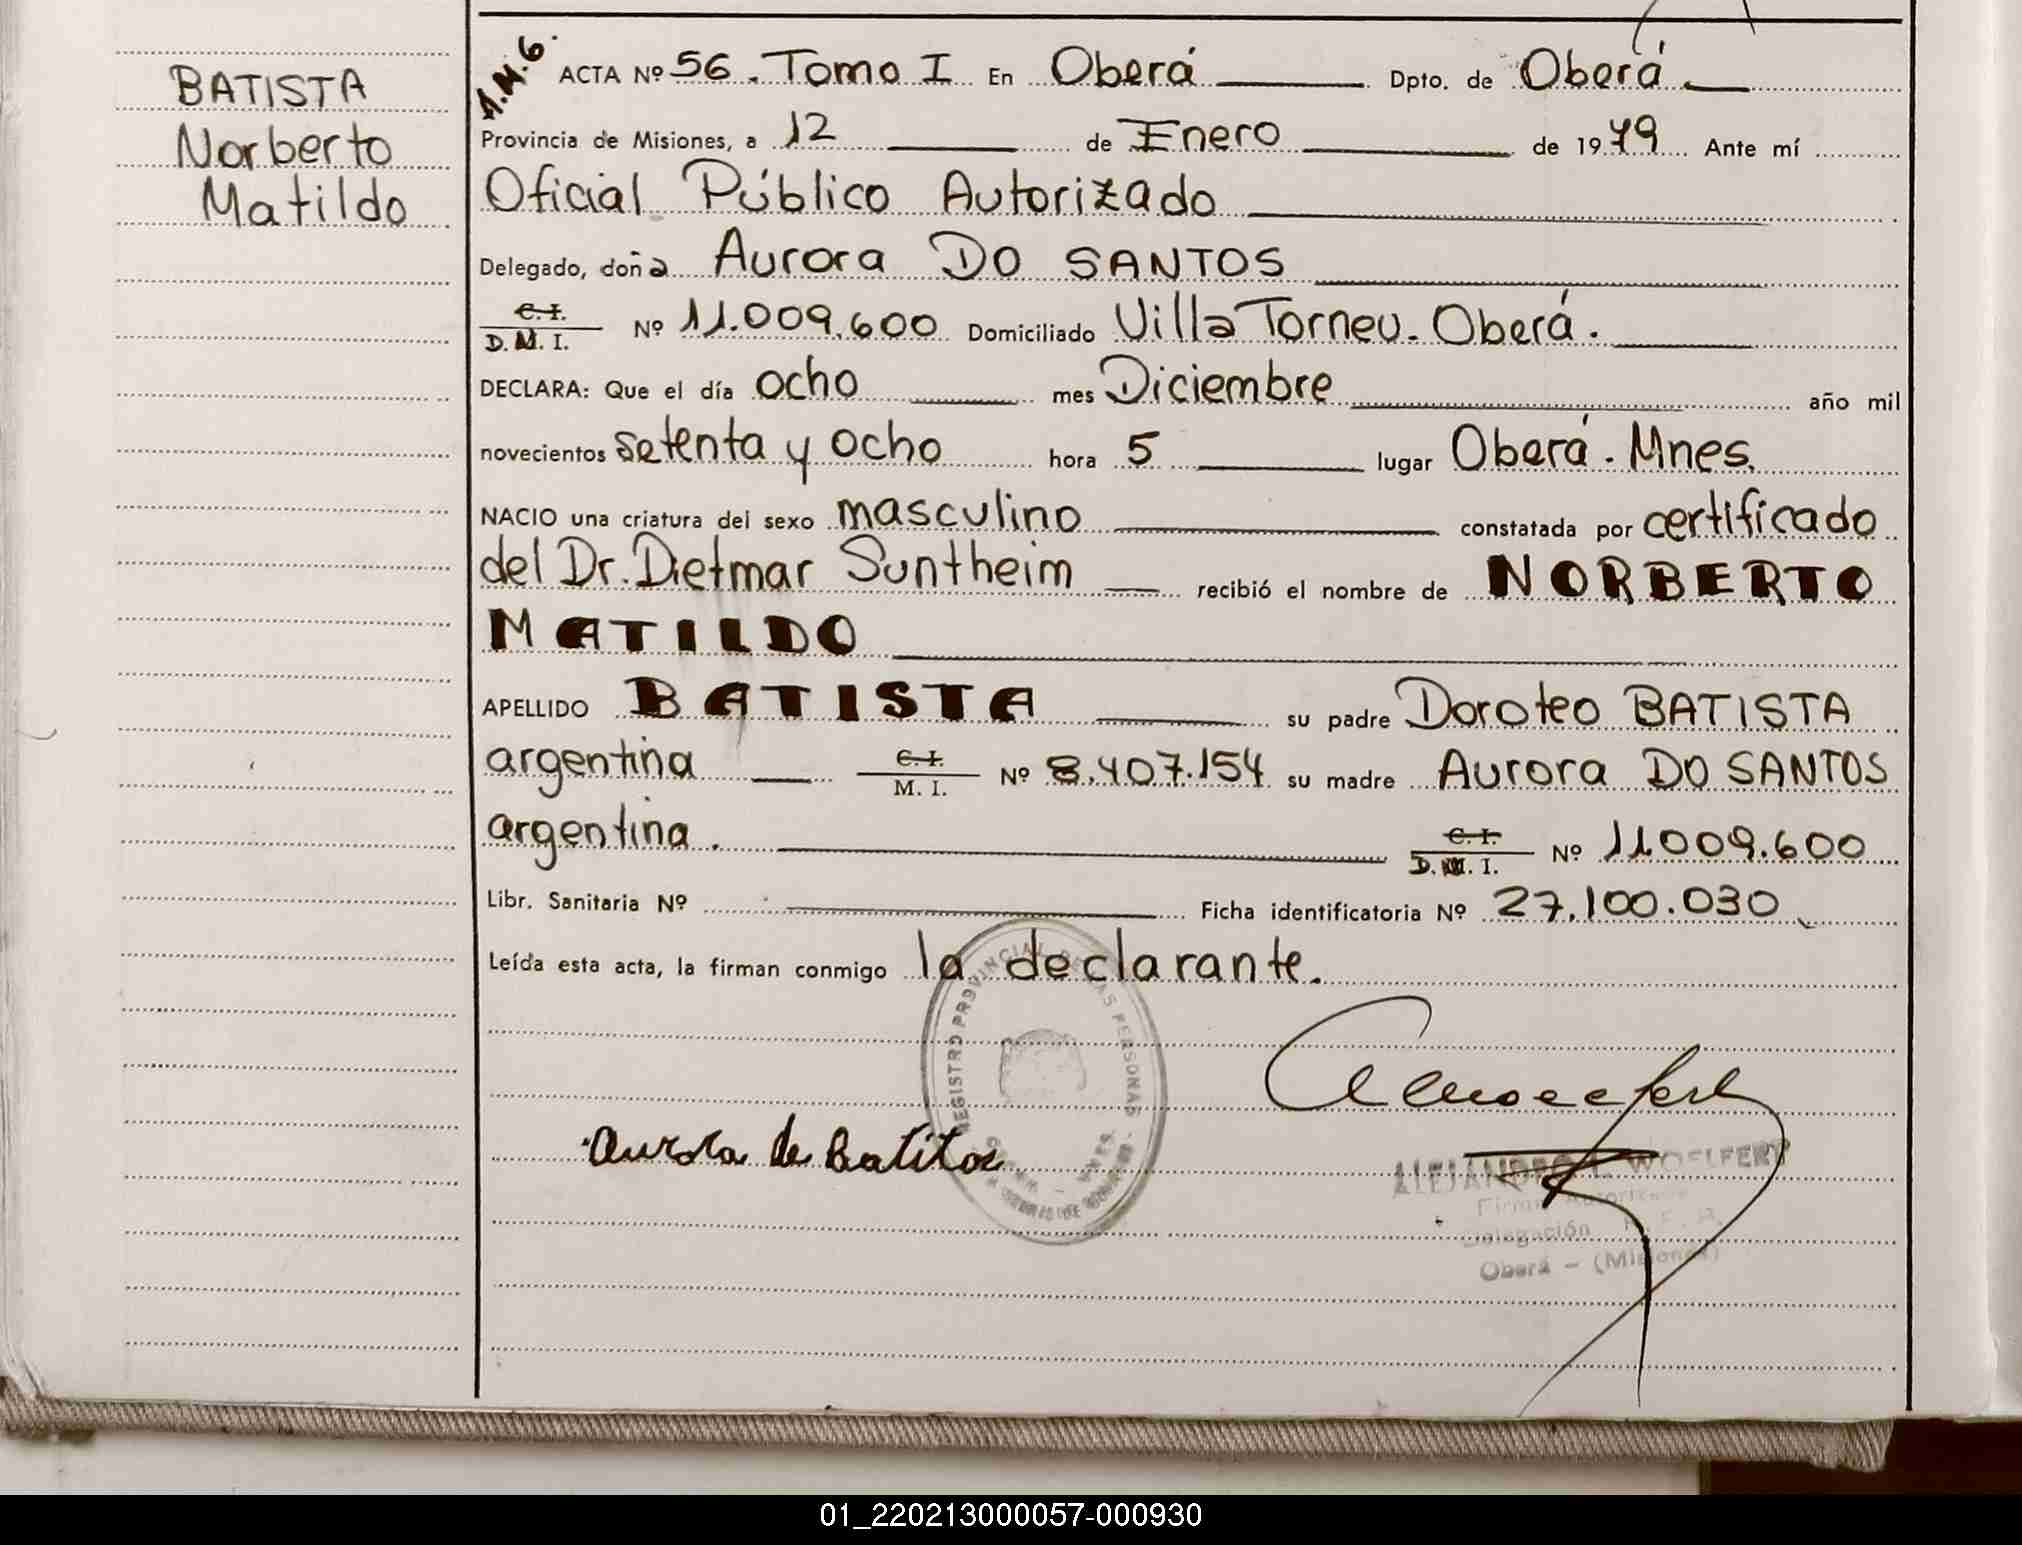 BATISTA
Norberto
Matildo
A.M.G.
ACTA Nº 56. Tomo I En Oberá Dpto. de Oberá
Provincia de Misiones, a 12 de Enero de 1979 Ante mí
Oficial Público Autorizado
Delegado, doña Aurora DO SANTOS
C. I.
D. M. I. Nº 11.009.600 Domiciliado Villa Torneu. Oberá.
DECLARA: Que el día ocho mes Diciembre año mil
novecientos setenta y ocho hora 5 lugar Oberá. Mnes.
NACIO una criatura del sexo masculino constatada por certificado
del Dr. Dietmar Suntheim recibió el nombre de NORBERTO
MATILDO
APELLIDO BATISTA su padre Doroteo BATISTA
argentina C. I. M. I. Nº 8.407.154 su madre Aurora DO SANTOS
argentina. C. I. D. M. I. Nº 11009.600
Libr. Sanitaria Nº Ficha identificatoria Nº 27.100.030
Leída esta acta, la firman conmigo la declarante.
REGISTRO PROVINCIAL DE LAS PERSONAS
Aurora de Batista
ALEJANDRO WOELFERT
Firma Autorizada
Delegación
Oberá - (Misiones)
01_220213000057-000930